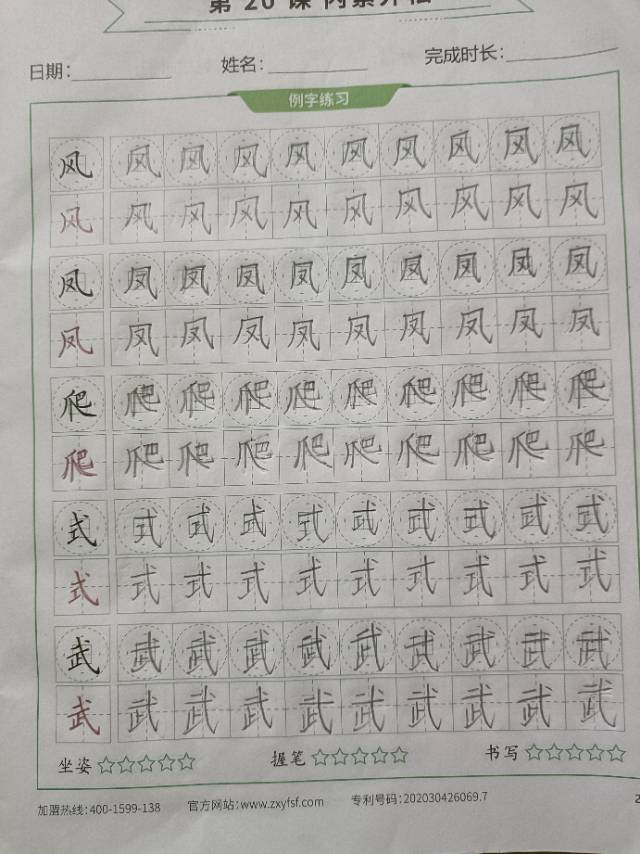 第 20 课 内紧外松
日期： 姓名： 完成时长：
例字练习
风 风 风 风 风 风 风 风 风 风
风 风 风 风 风 风 风 风 风 风
凤 凤 凤 凤 凤 凤 凤 凤 凤 凤
凤 凤 凤 凤 凤 凤 凤 凤 凤 凤
爬 爬 爬 爬 爬 爬 爬 爬 爬 爬
爬 爬 爬 爬 爬 爬 爬 爬 爬 爬
式 式 式 式 式 式 式 式 式 式
式 式 式 式 式 式 式 式 式 式
武 武 武 武 武 武 武 武 武 武
武 武 武 武 武 武 武 武 武 武
坐姿☆☆☆☆☆ 握笔☆☆☆☆☆ 书写☆☆☆☆☆
加盟热线：400-1599-138 官方网站：www.zxyfsf.com 专利号码：202030426069.7